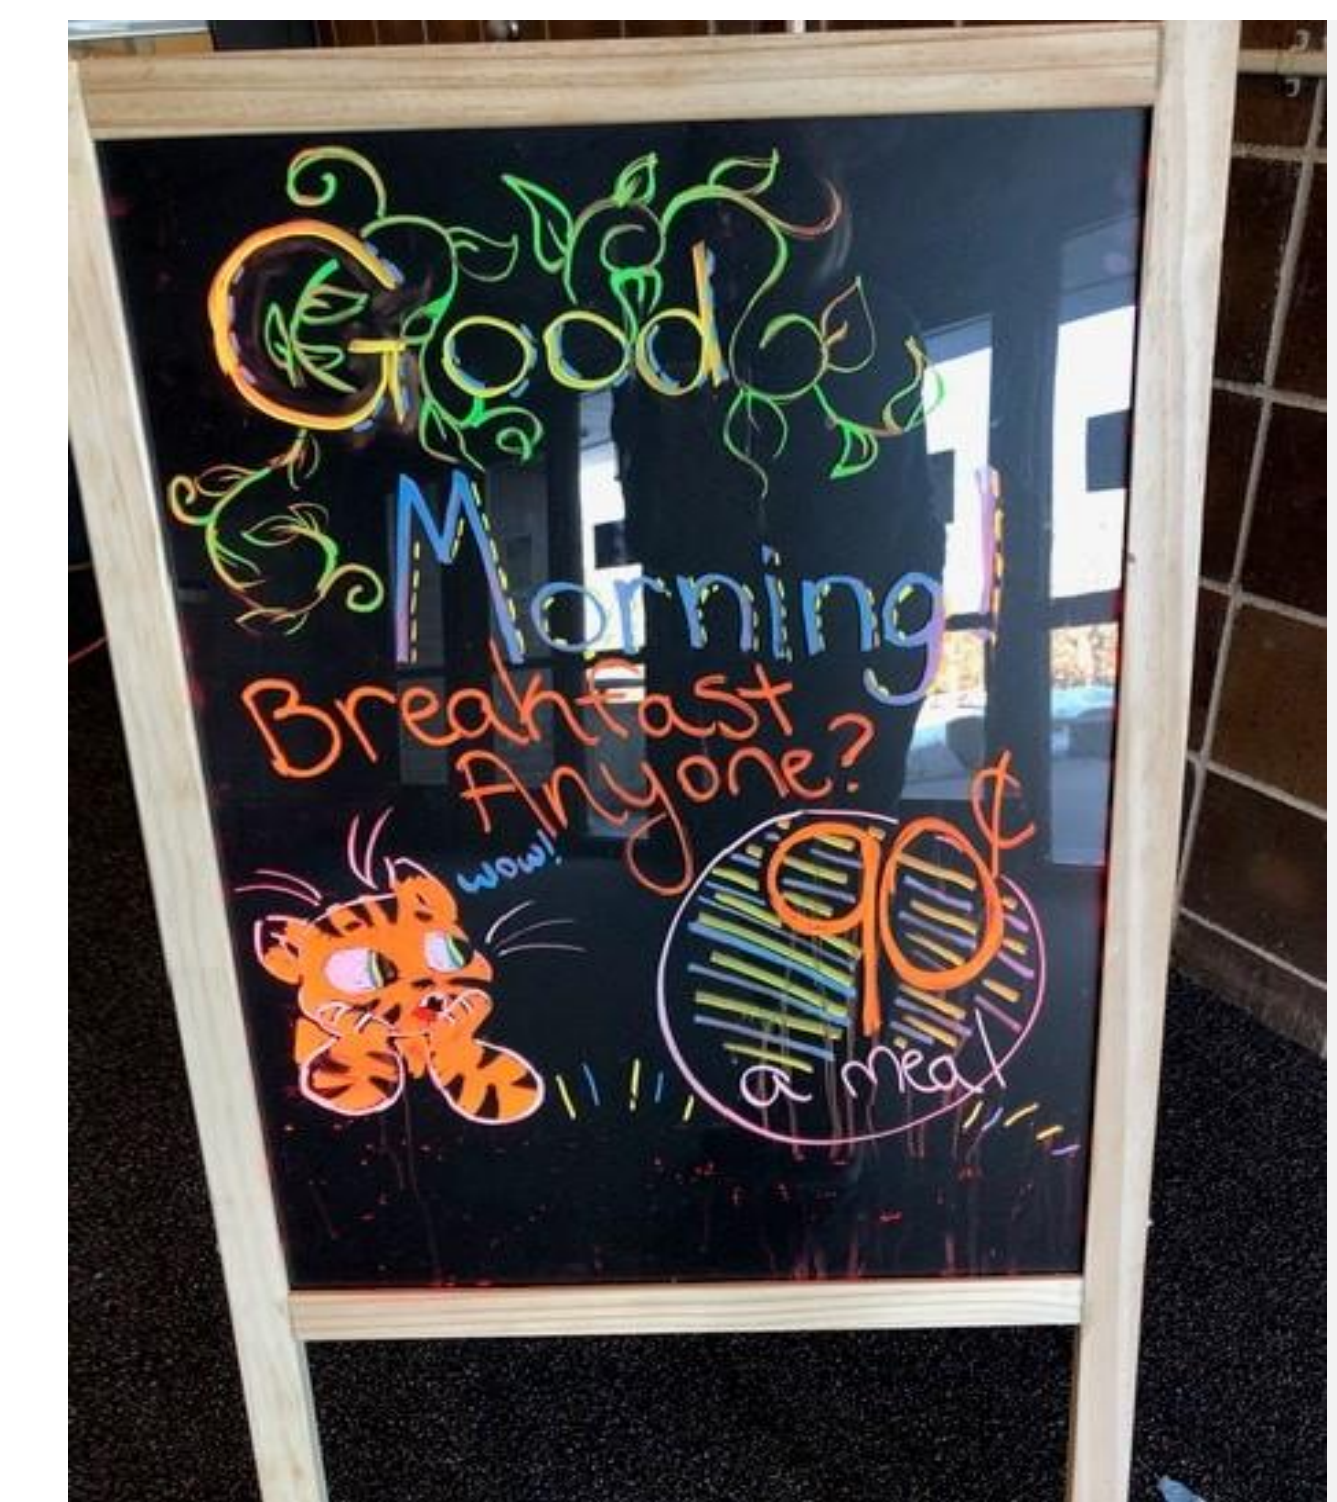 Good
Morning!
Breakfast
Anyone?
wow!
90¢
a meal